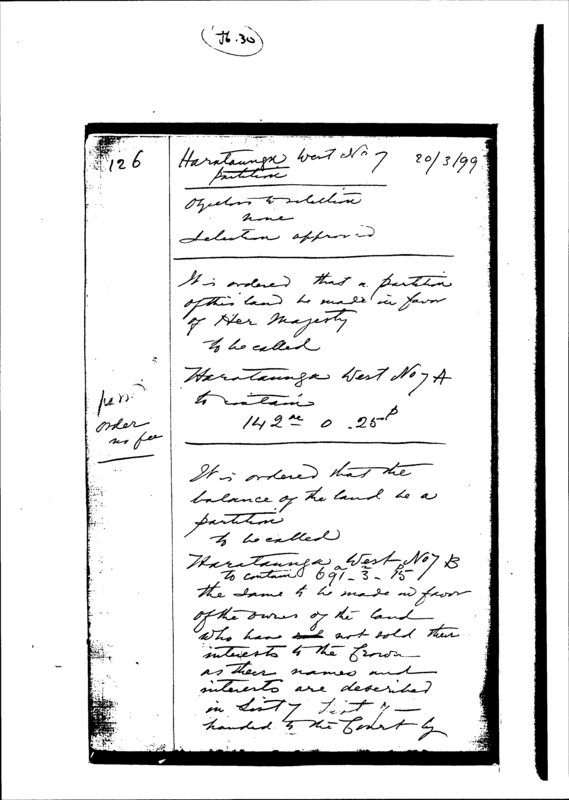 J6.30
126
Harataunga West No 7 20/3/99
partition
Objections to selection
none
Selection approved
It is ordered that a partition
of this land be made in favor
of Her Majesty
to be called
Harataunga West No 7 A
to contain
142 ac 0 . 25 p
order
no fee
It is ordered that the
balance of the land be a
partition
to be called
Harataunga West No 7 B
to contain 691 a - 3 - 15 p
the same to be made in favor
of the owners of the land
who have not sold their
interests to the Crown
as their names and
interests are described
in List
handed to the Court by